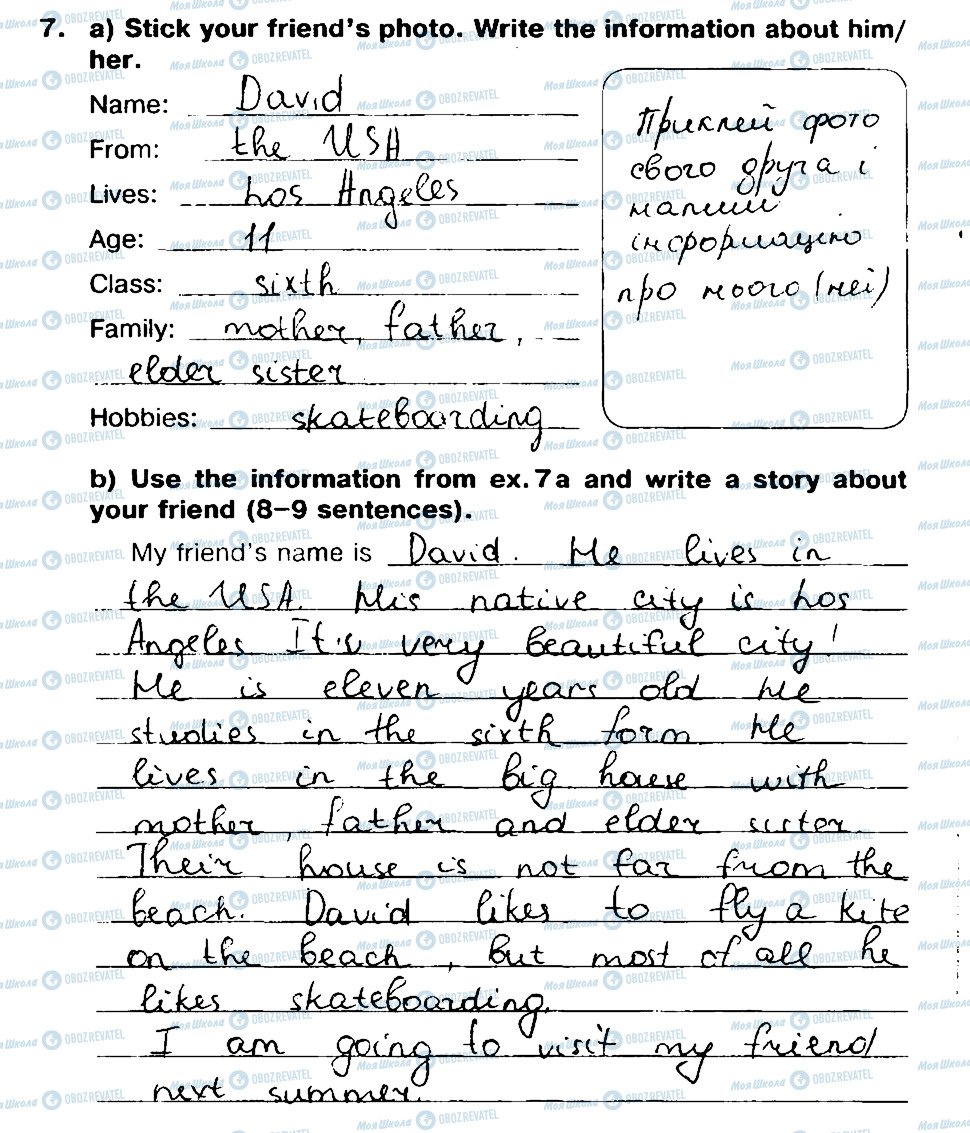 7. a) Stick your friend's photo. Write the information about him/
her.
Name: David
From: the USA
Lives: Los Angeles
Age: 11
Class: sixth
Family: mother, father,
elder sister
Hobbies: skateboarding
Приклей фото
свого друга і
напиши
інформацію
про нього (неї)
b) Use the information from ex. 7a and write a story about
your friend (8–9 sentences).
My friend's name is David. He lives in
the USA. His native city is Los
Angeles It's very beautiful city!
He is eleven years old He
studies in the sixth form He
lives in the big house with
mother, father and elder sister
Their house is not far from the
beach. David likes to fly a kite
on the beach, but most of all he
likes skateboarding.
I am going to visit my friend
next summer.
МояШкола OBOZREVATEL